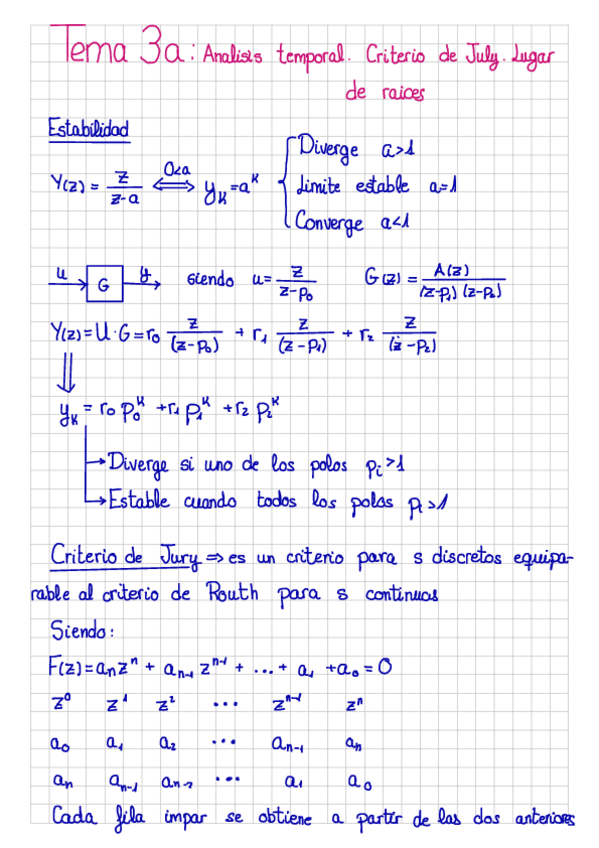 Tema 3a: Analisis temporal. Criterio de July. Lugar
de raices
Estabilidad
Y(z) = z/(z-a) ⟺ 0<a y_k = a^k { Diverge a>1
Limite estable a=1
Converge a<1
u → G → y siendo u = z/(z-p₀) G(z) = A(z)/((z-p₁)(z-p₂))
Y(z) = U·G = r₀ z/(z-p₀) + r₁ z/(z-p₁) + r₂ z/(z-p₂)
⇓
y_k = r₀ p₀^k + r₁ p₁^k + r₂ p₂^k
→ Diverge si uno de los polos p_i >1
→ Estable cuando todos los polos p_i >1
Criterio de Jury ⇒ es un criterio para s discretos equipa-
rable al criterio de Routh para s continuos
Siendo:
F(z) = a_n z^n + a_{n-1} z^{n-1} + ... + a₁ + a₀ = 0
z⁰ z¹ z² ... z^{n-1} z^n
a₀ a₁ a₂ ... a_{n-1} a_n
a_n a_{n-1} a_{n-2} ... a₁ a₀
Cada fila impar se obtiene a partir de las dos anteriores